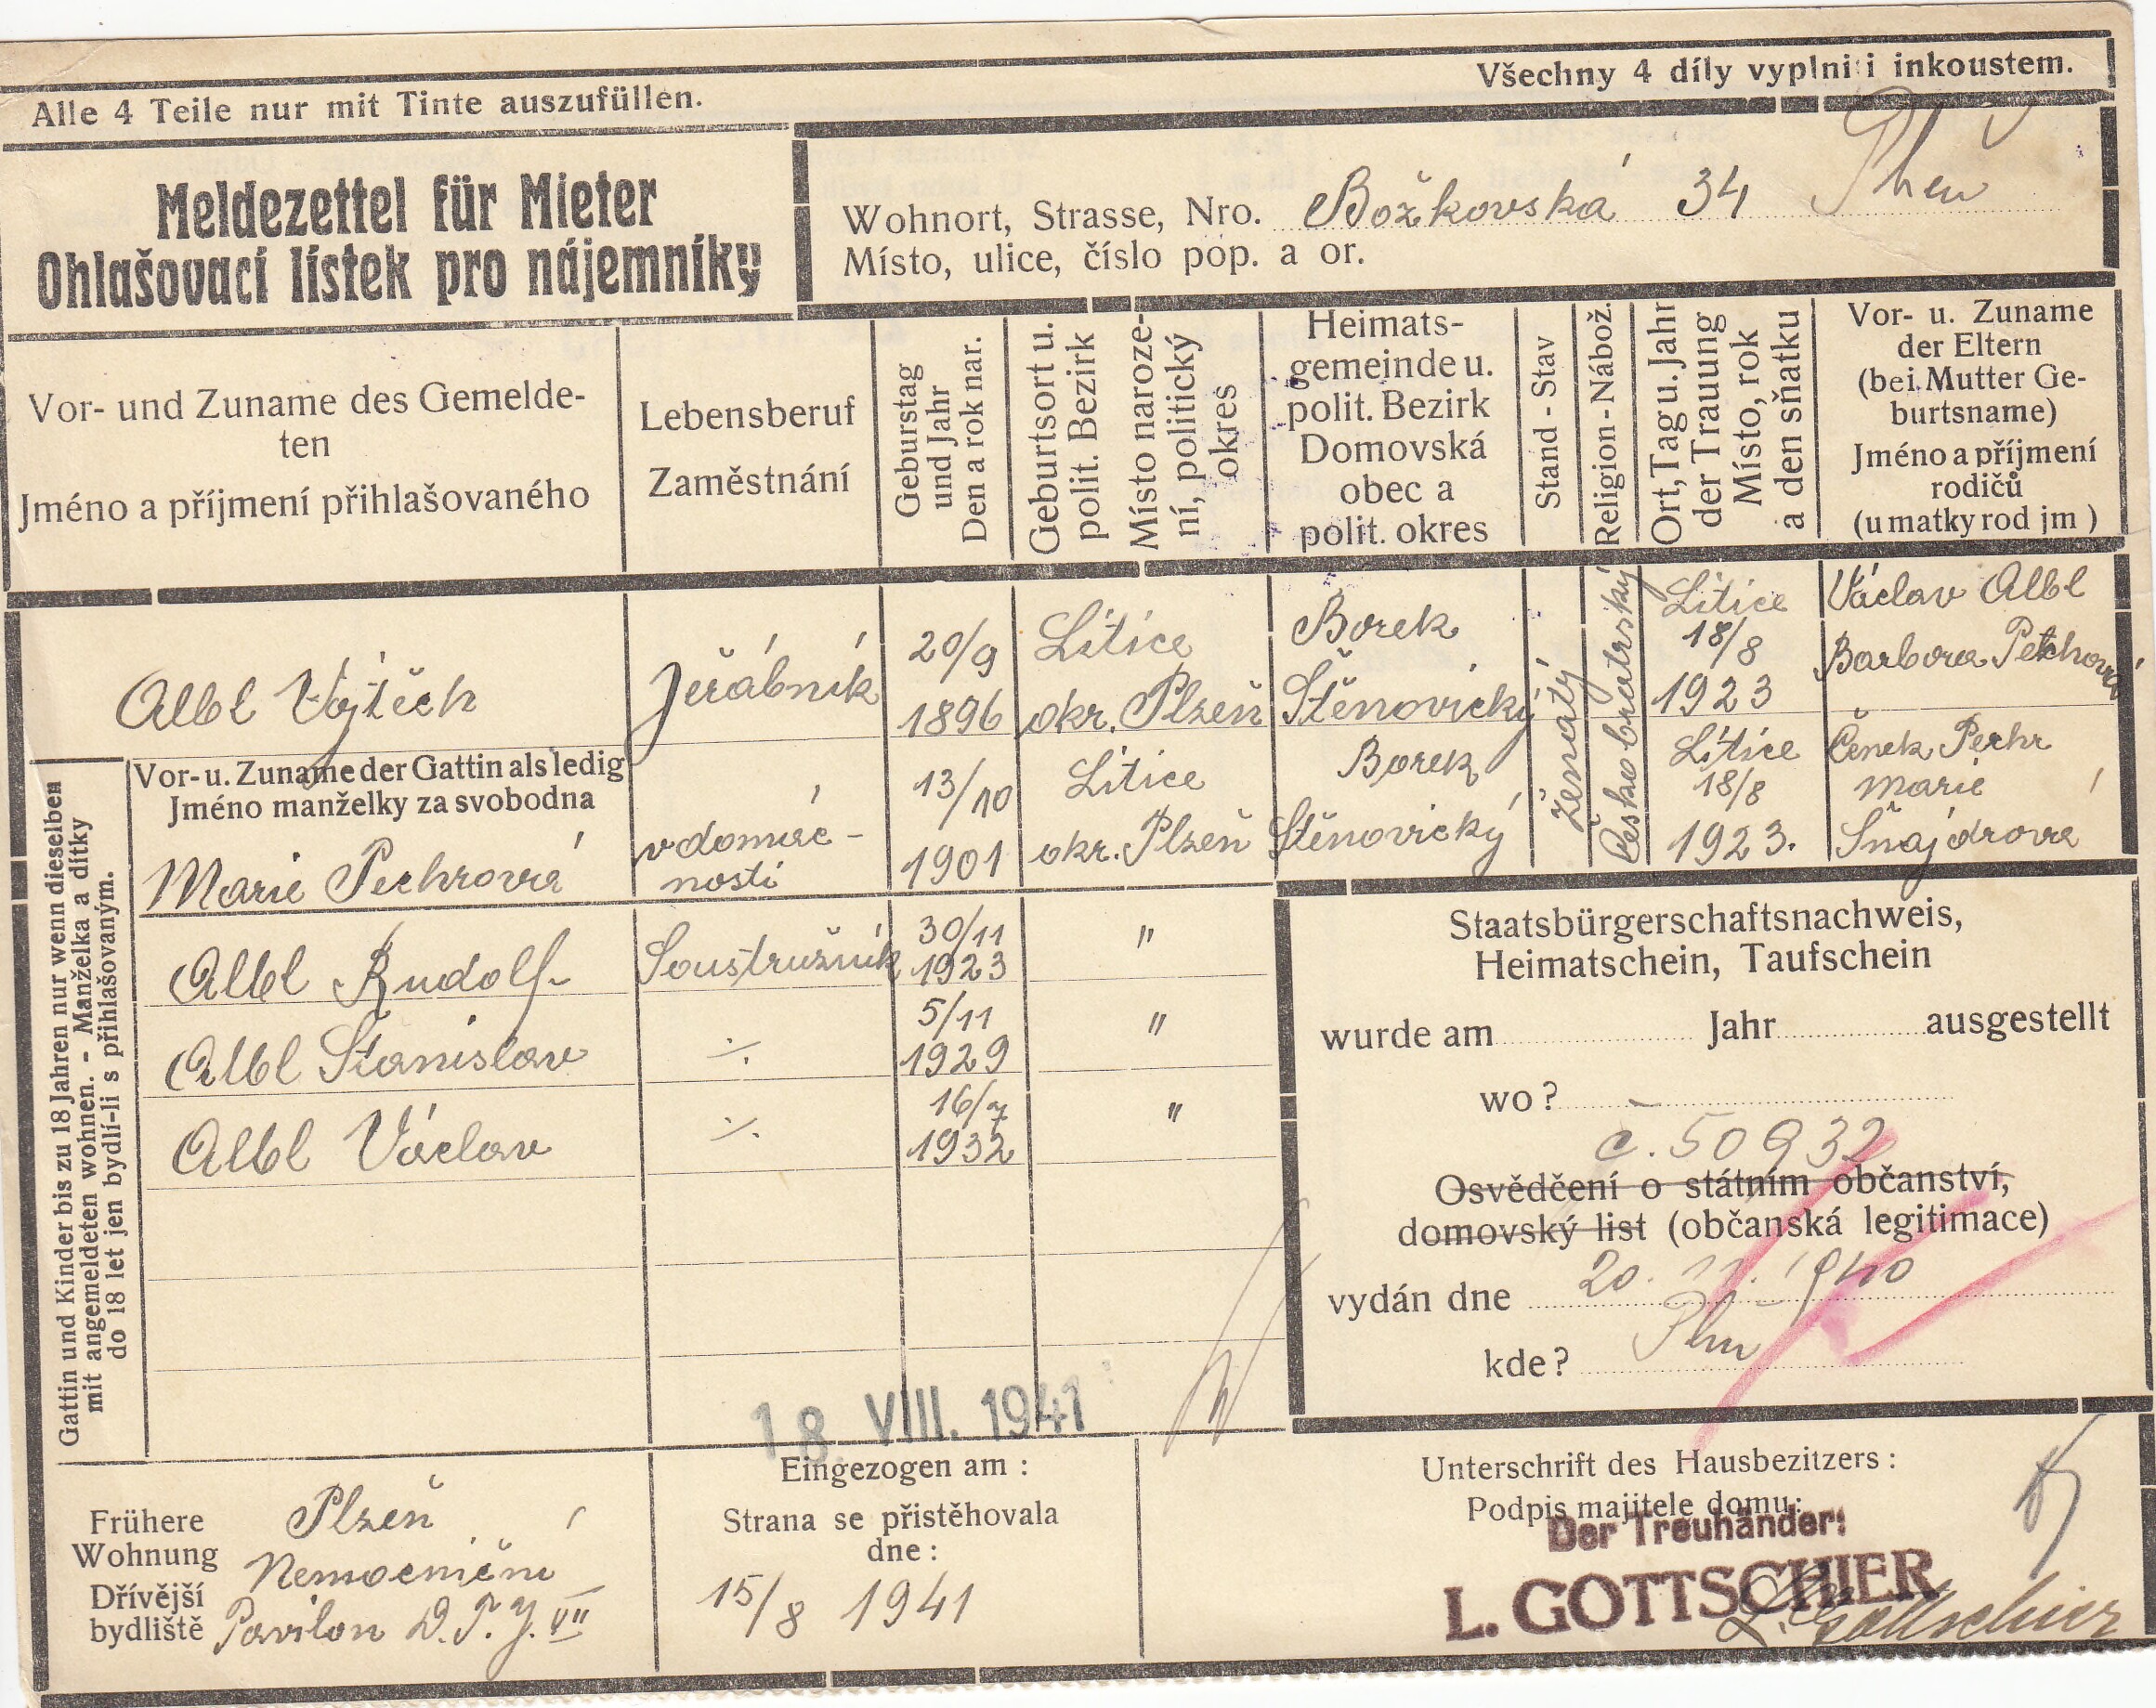 Všechny 4 díly vyplniti inkoustem.
Alle 4 Teile nur mit Tinte auszufüllen.
Meldezettel für Mieter
Ohlašovací lístek pro nájemníky
Wohnort, Strasse, Nro. Božkovská 34 Plzeň
Místo, ulice, číslo pop. a or.
Vor- und Zuname des Gemelde-
ten
Jméno a příjmení přihlašovaného
Lebensberuf
Zaměstnání
Geburstag
und Jahr
Den a rok nar.
Geburtsort u.
polit. Bezirk
Místo naroze-
ní, politický
okres
Heimats-
gemeinde u.
polit. Bezirk
Domovská
obec a
polit. okres
Stand - Stav
Religion - Nábož.
Ort, Tag u. Jahr
der Trauung
Místo, rok
a den sňatku
Vor- u. Zuname
der Eltern
(bei Mutter Ge-
burtsname)
Jméno a příjmení
rodičů
(u matky rod jm )
Albl Vojtěch
Jeřábník
20/9
1896
Litice
okr. Plzeň
Borek
Štěnovický
ženatý
Českobratrský
Litice
18/8
1923
Václav Albl
Barbora
Vor- u. Zuname der Gattin als ledig
Jméno manželky za svobodna
Marie Pechrová
v domác-
nosti
13/10
1901
Litice
okr. Plzeň
Borek
Štěnovický
Litice
18/8
1923.
Čeněk Pechr
Marie
Šnajdrová
Gattin und Kinder bis zu 18 Jahren nur wenn dieselben
mit angemeldeten wohnen. - Manželka a dítky
do 18 let jen bydlí-li s přihlašovaným.
Albl Rudolf Soustružník 30/11 1923 "
Albl Stanislav ./. 5/11 1929 "
Albl Václav ./. 16/7 1932 "
Staatsbürgerschaftsnachweis,
Heimatschein, Taufschein
wurde am Jahr ausgestellt
wo? -
č. 50932
Osvědčení o státním občanství,
domovský list (občanská legitimace)
vydán dne 20. 11. 1940
kde? Plzň
18. VIII. 1941
Frühere
Wohnung
Dřívější
bydliště
Plzeň
Nemocniční
Pavilon D.T.J. VII
Eingezogen am :
Strana se přistěhovala
dne :
15/8 1941
Unterschrift des Hausbezitzers :
Podpis majitele domu:
Der Treuhänder:
L. GOTTSCHIER
L. Gottschier